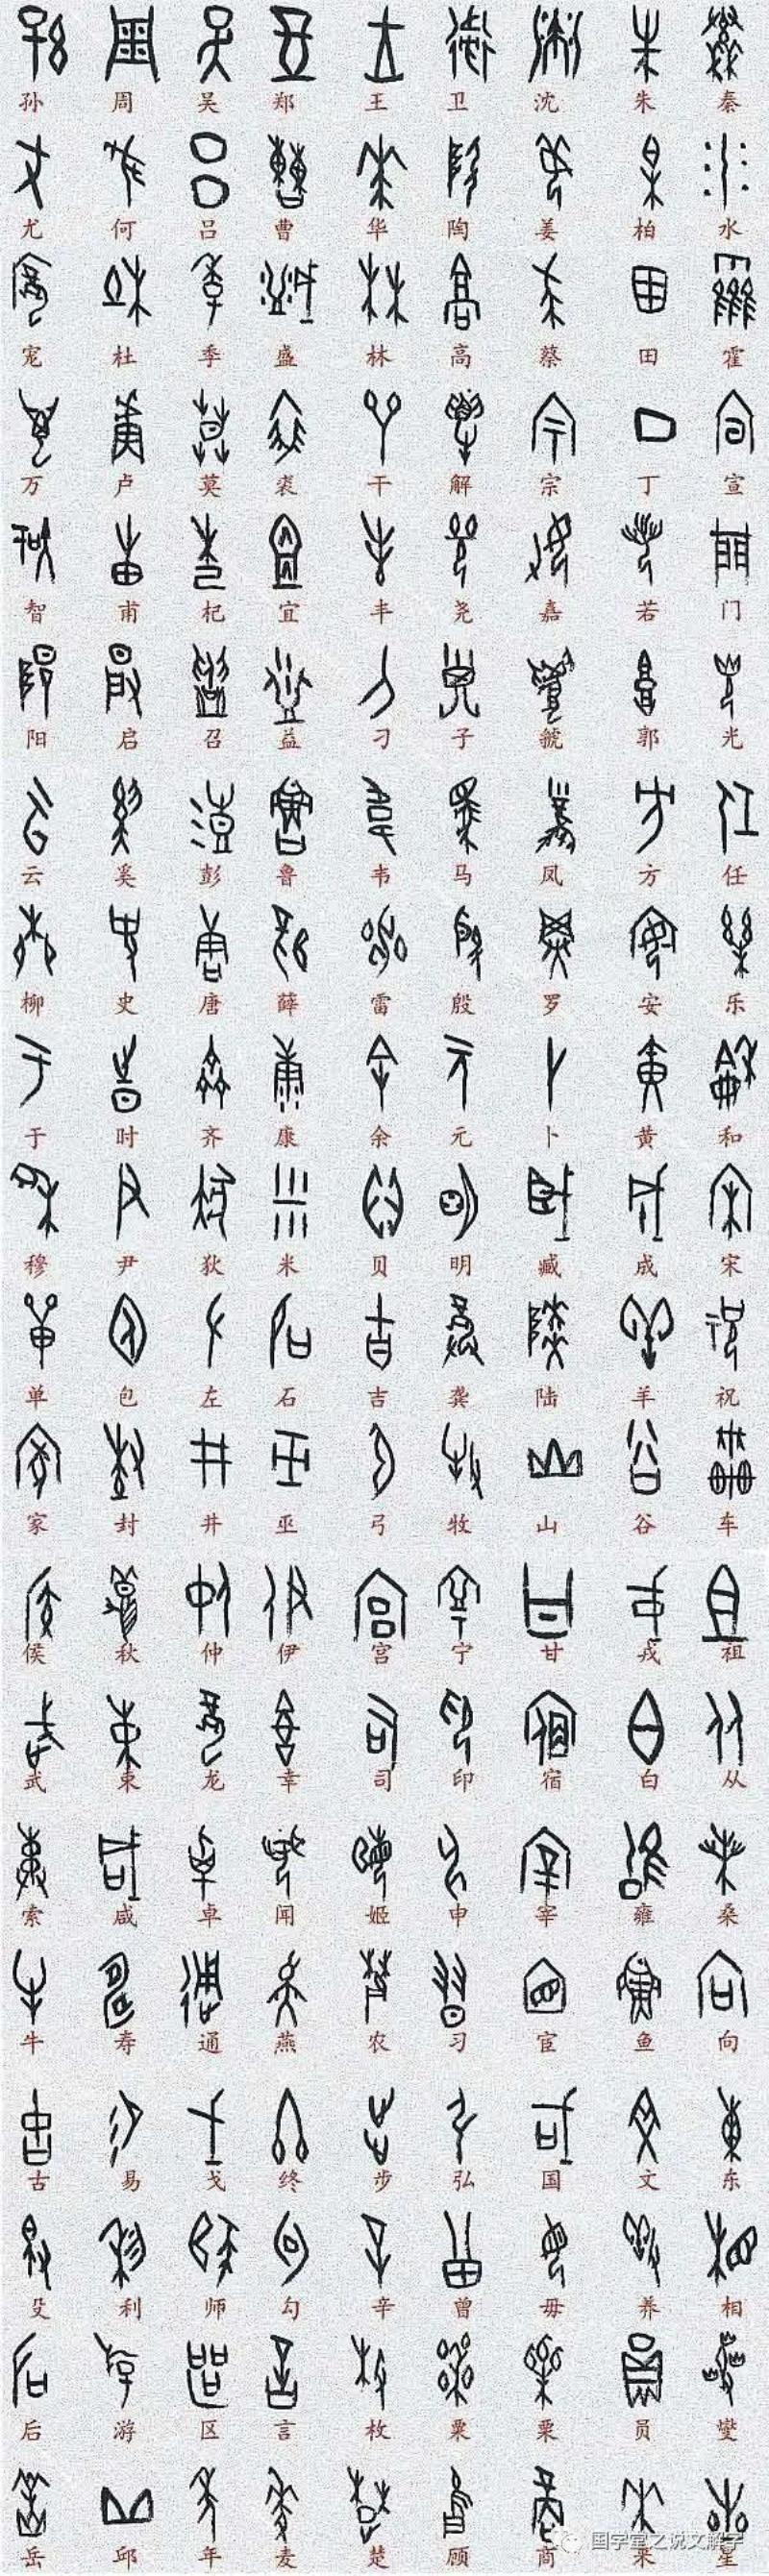 孙 周 吴 郑 王 卫 沈 朱 秦
尤 何 吕 曹 华 陶 姜 柏 水
宠 杜 季 盛 林 高 蔡 田 霍
万 卢 莫 裘 干 解 宗 丁 宣
智 甫 杞 宜 丰 尧 嘉 若 门
阳 启 召 益 刁 子 虢 郭 光
云 奚 彭 鲁 韦 马 凤 方 任
柳 史 唐 薛 雷 殷 罗 安 乐
于 时 齐 康 余 元 卜 黄 和
穆 尹 狄 米 贝 明 臧 成 宋
单 包 左 石 吉 龚 陆 羊 祝
家 封 井 巫 弓 牧 山 谷 车
侯 秋 仲 伊 宫 宁 甘 戎 祖
武 束 龙 幸 司 印 宿 白 从
索 咸 卓 闻 姬 申 宰 雍 桑
牛 寿 通 燕 农 习 宦 鱼 向
古 易 戈 终 步 弘 国 文 东
殳 利 师 勾 辛 曾 毋 养 相
后 游 区 言 枚 粟 栗 员 燮
岳 邱 年 麦 楚 顾 商 来 星
国学堂之说文解字